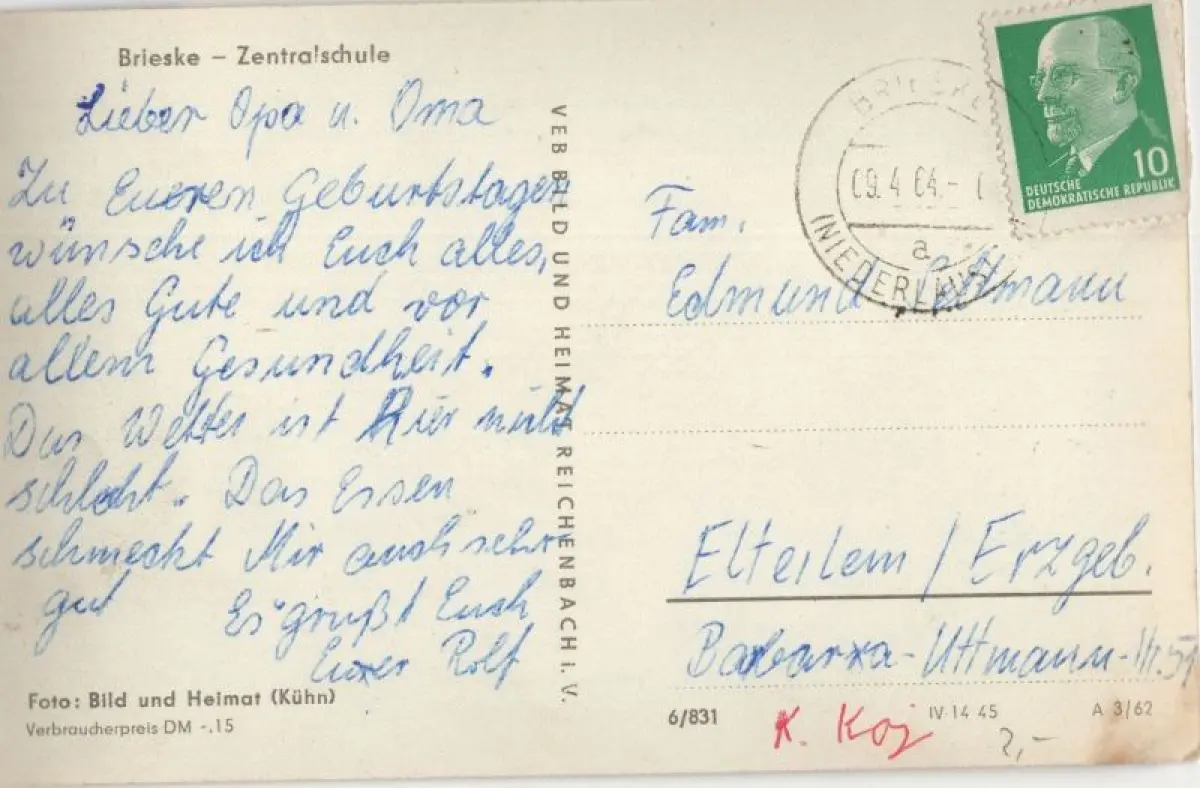 Brieske – Zentralschule
Lieber Opa u. Oma
Zu Eueren Geburtstagen
wünsche ich Euch alles,
alles Gute und vor
allem Gesundheit.
Das Wetter ist Hier nicht
schlecht. Das Essen
schmeckt Mir auch sehr
gut Es grüßt Euch
Eurer Rolf
Foto: Bild und Heimat (Kühn)
Verbraucherpreis DM -.15
VEB BILD UND HEIMAT REICHENBACH i. V.
BRIESKE
09.4 64.-
a
(NIEDERLAUS
10
DEUTSCHE
DEMOKRATISCHE REPUBLIK
Fam.
Edmund
Elterlein / Erzgeb.
Barbara-Uttmann-Str. 51
6/831
K. Koj
IV-14 45
A 3/62
2,-